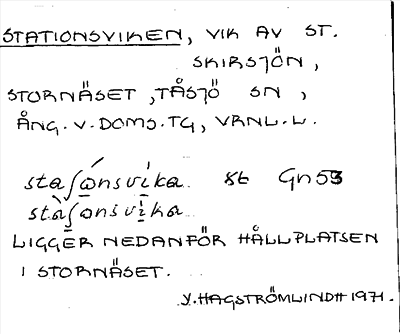 STATIONSVIKEN, VIK AV ST.
SKIRSJÖN,
STORNÄSET, TÅSJÖ SN,
ÅNG. V. DOMS. TG, VRNL. L.
staʃónsvíka. st Gn 53
stàʃonsvika
LIGGER NEDANFÖR HÅLLPLATSEN
I STORNÄSET.
V. HAGSTRÖMLINDH 1971.